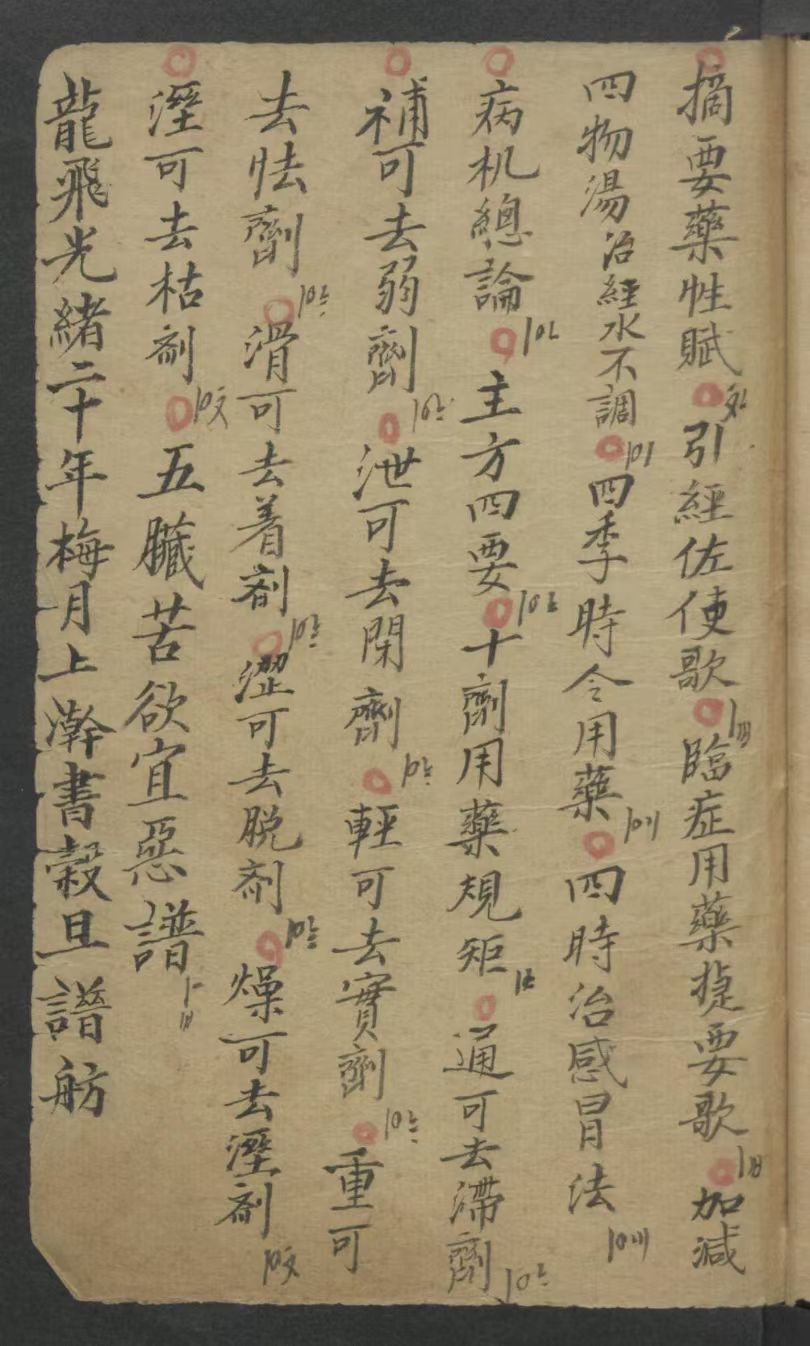 摘要藥性賦○引經佐使歌○臨症用藥捷要歌○加減
四物湯治經水不調○四季時令用藥○四時治感冒法
○病机總論○主方四要○十劑用藥規矩○通可去滯劑
○補可去弱劑○泄可去閉劑○輕可去實劑○重可
去怯劑○滑可去着剤○澀可去脱剤○燥可去溼剤
○溼可去枯剤○五臟苦欲宜惡譜
龍飛光緒二十年梅月上澣書穀旦譜舫